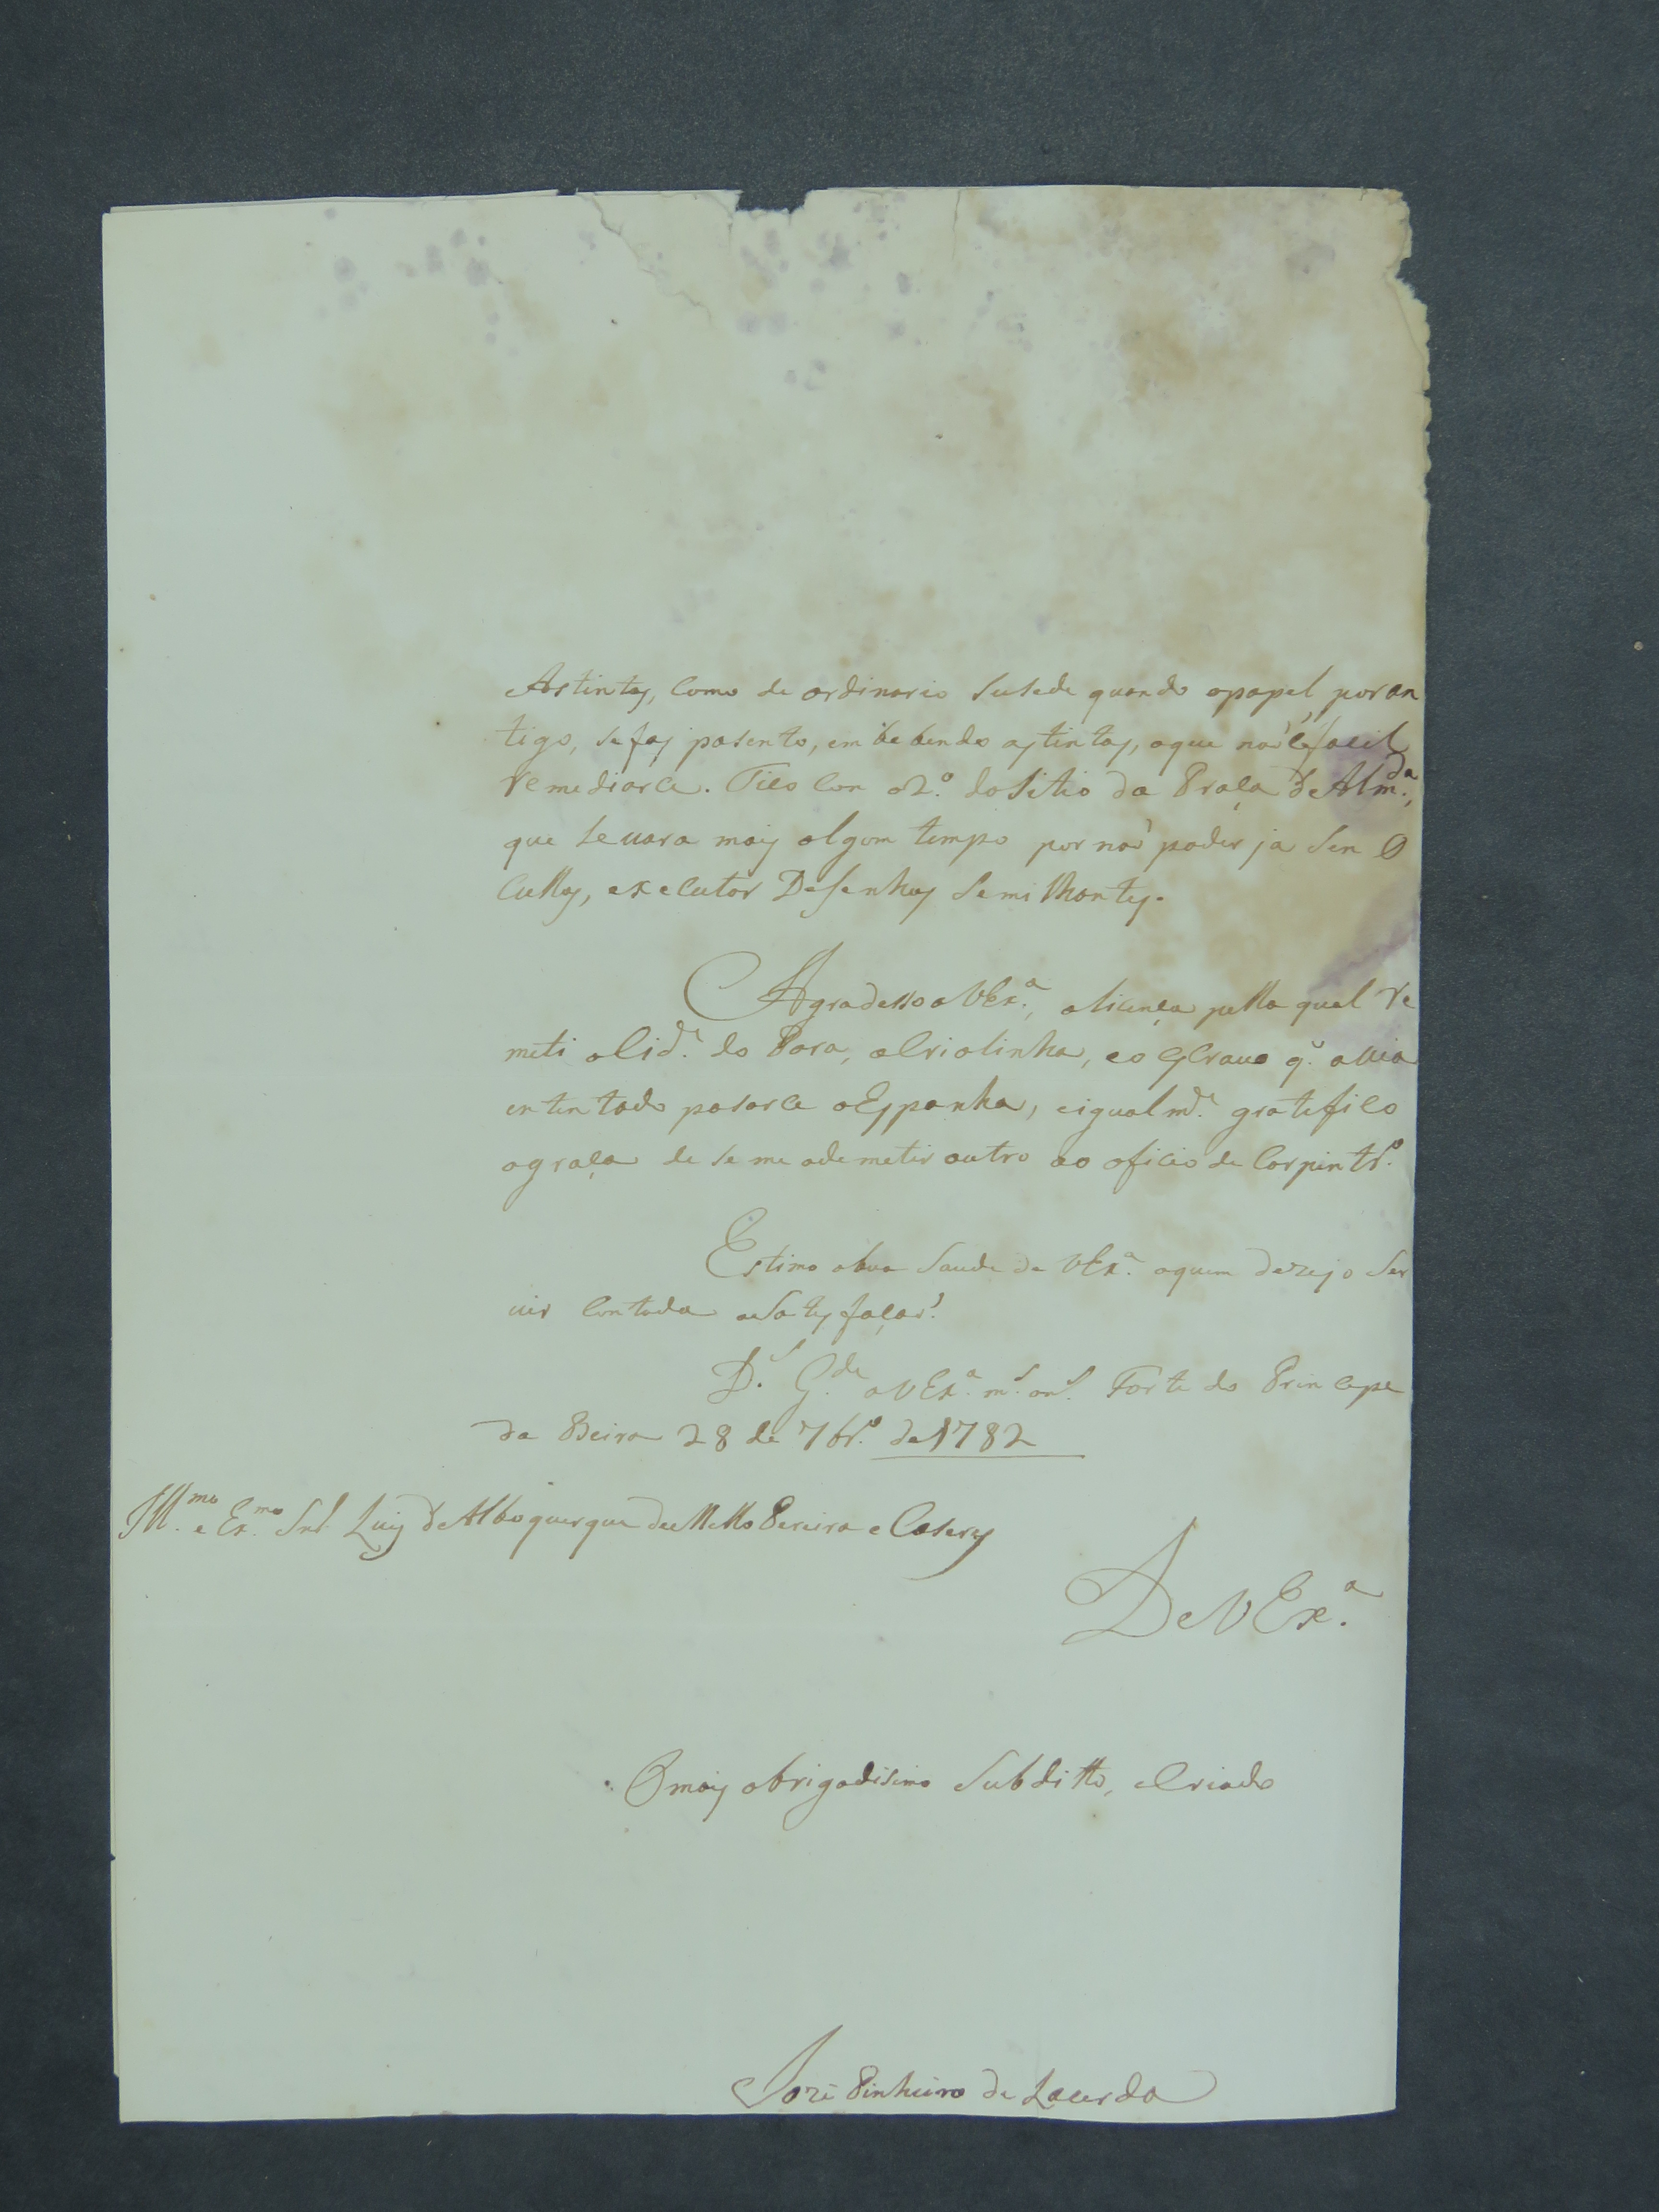 As tintas, como de ordinario susede quando opapel, por an
tigo, se fas pasento, embebendo as tintas, oque naõ he facil
remediarce. Fico con o 2.º do Sitio da Praça de Alm.da,
que levara mais algom tempo por naõ poder ja sen O
cullos, executar Desenhos Semilhantes.
Agradesso a VEx.ª, a licença pella qual re
meti a Cid.e do Para, a Criolinha, eo Escravo q.' avia
intentado pasarce a Espanha, e igualm.te gratefico
agraça de se me ademetir outro ao oficio de Carpintr.º
Estimo aboa Saude de VEx.ª aquem dezejo Ser
vir con toda a Satysfaçaõ.
D.s G.de a VEx.ª m.s an.s Forte do Princepe
da Beira 28 de 7br.º de 1782
Ill.mo e Ex.mo Snr. Luis de Alboquerque de Mello Pereira e Caseres
De VEx.ª
O mais obrigadisimo Subditto, e Criado
Jozê Pinheiro de Lacerda